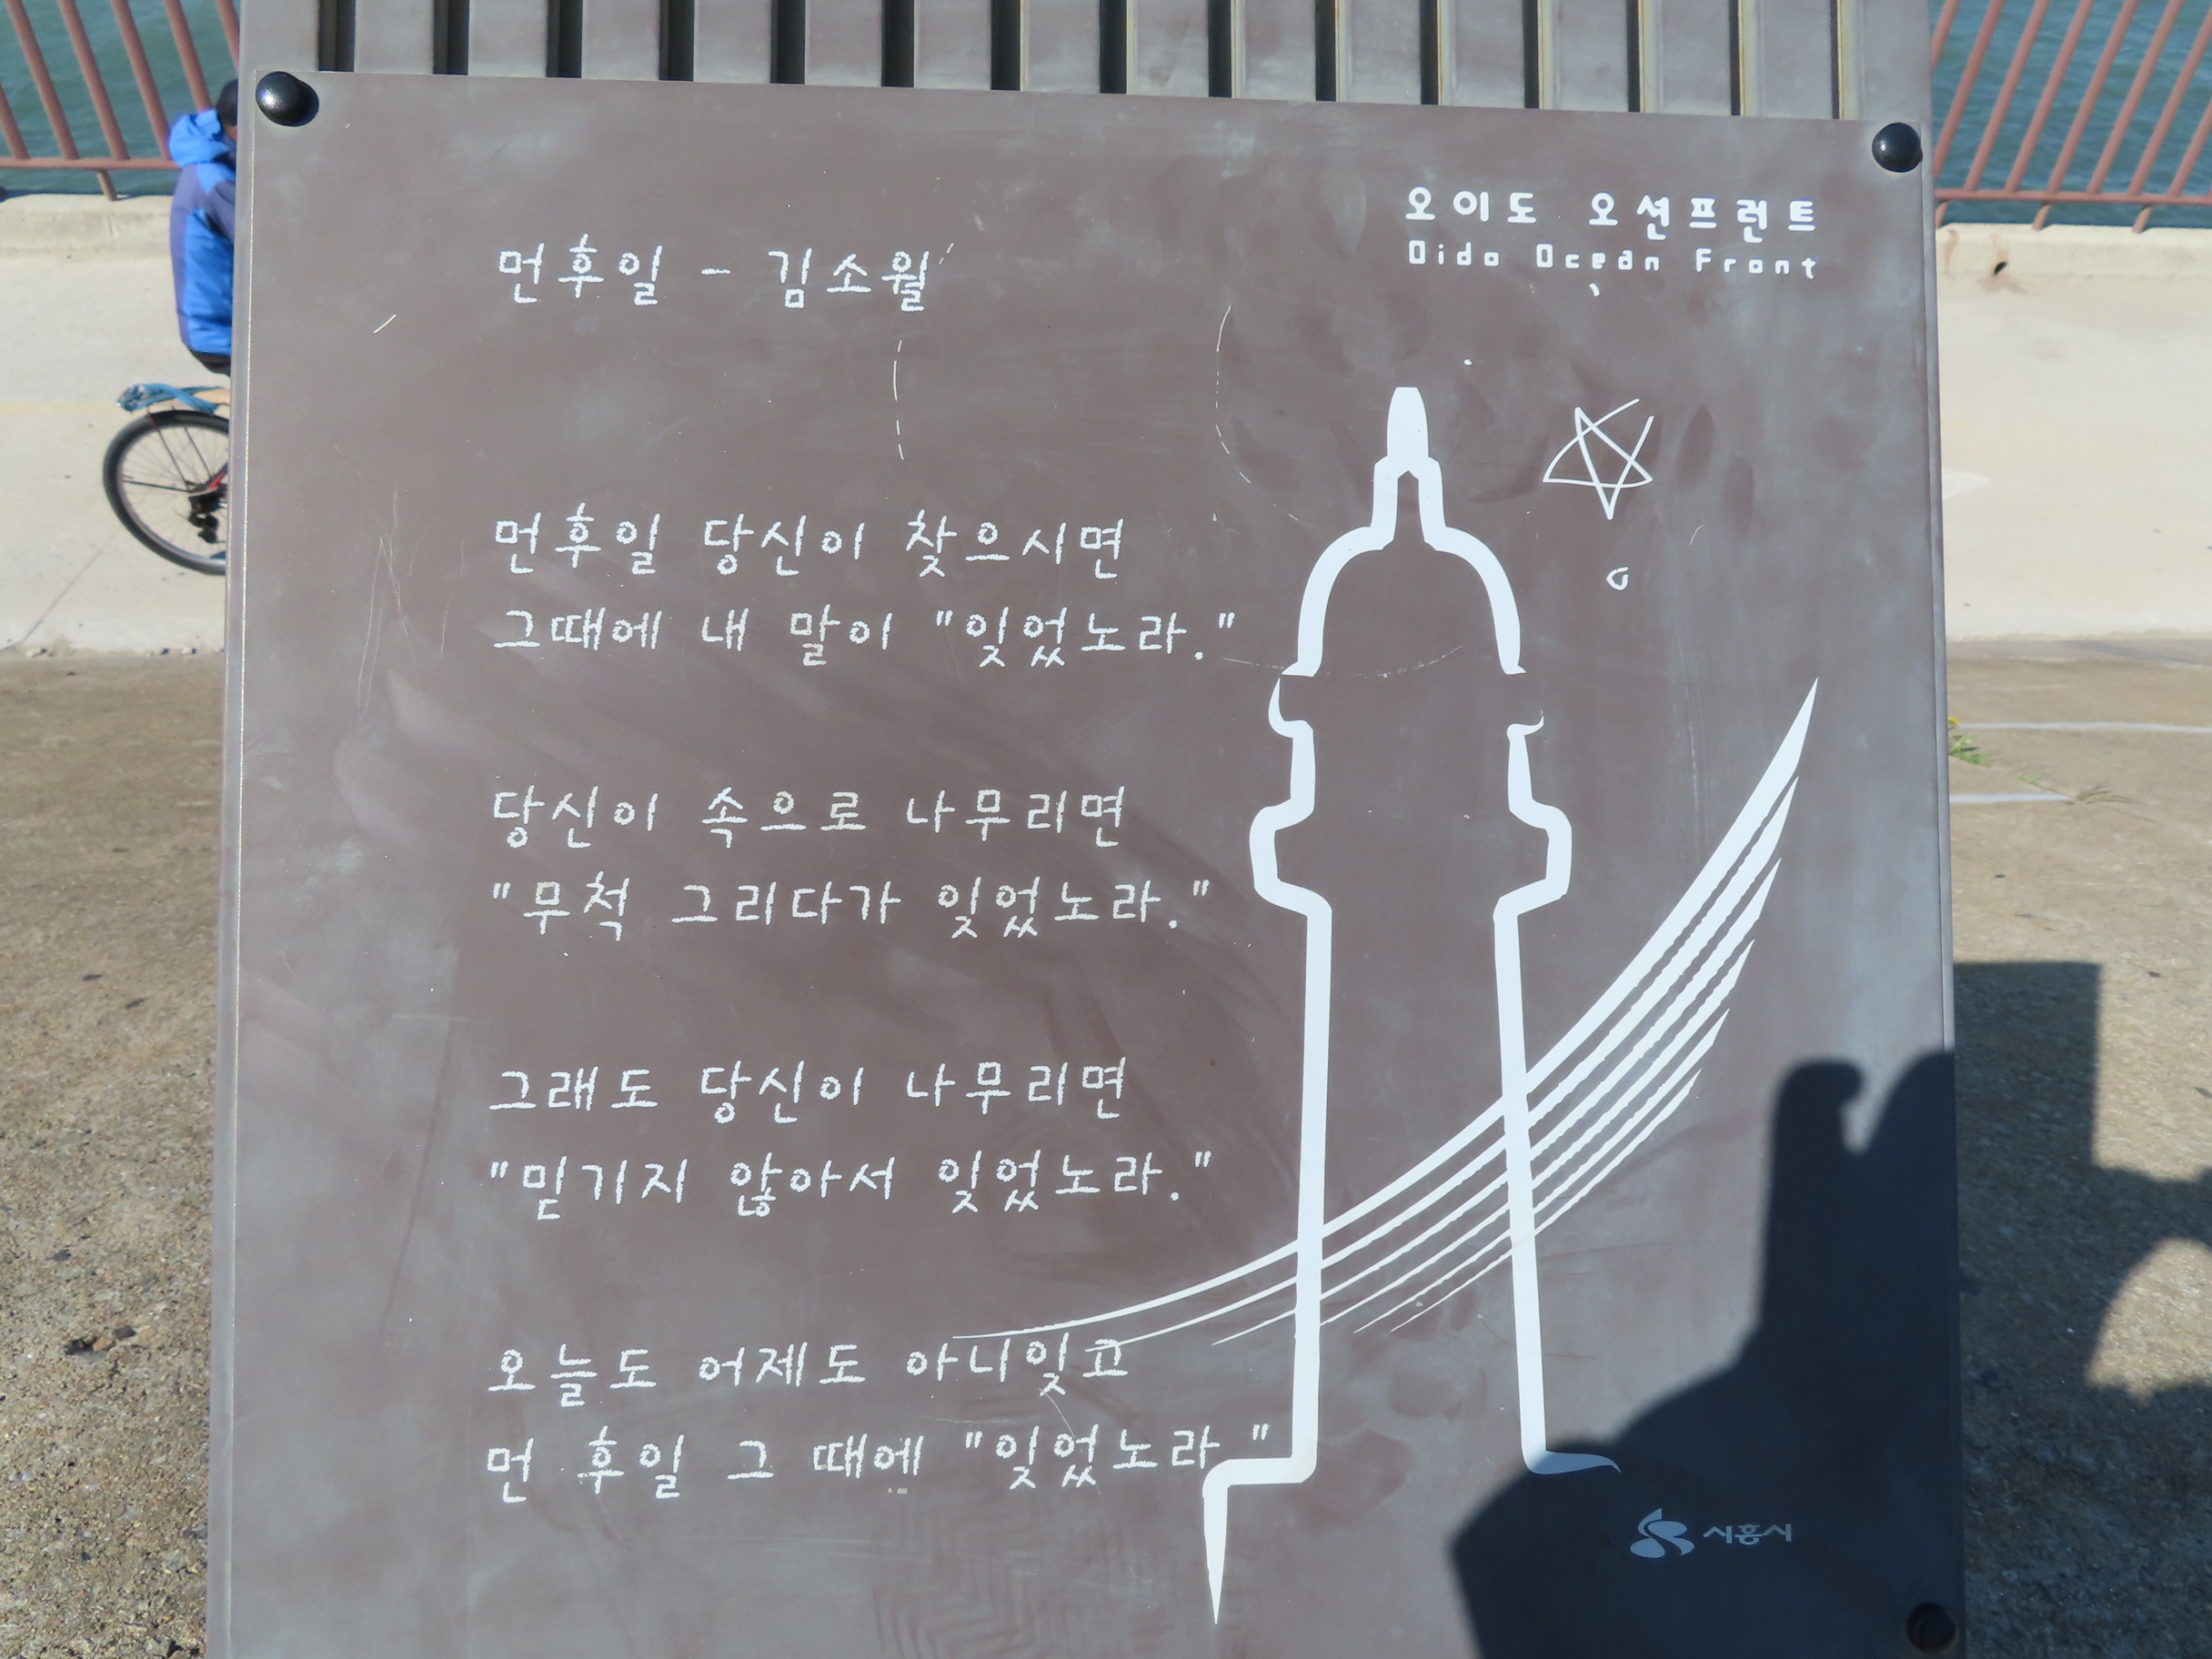 오이도 오션프런트
Oido Ocean Front
먼후일 - 김소월
먼후일 당신이 찾으시면
그때에 내 말이 "잊었노라."
당신이 속으로 나무리면
"무척 그리다가 잊었노라."
그래도 당신이 나무리면
"믿기지 않아서 잊었노라."
오늘도 어제도 아니잊고
먼 후일 그 때에 "잊었노라 "
시흥시